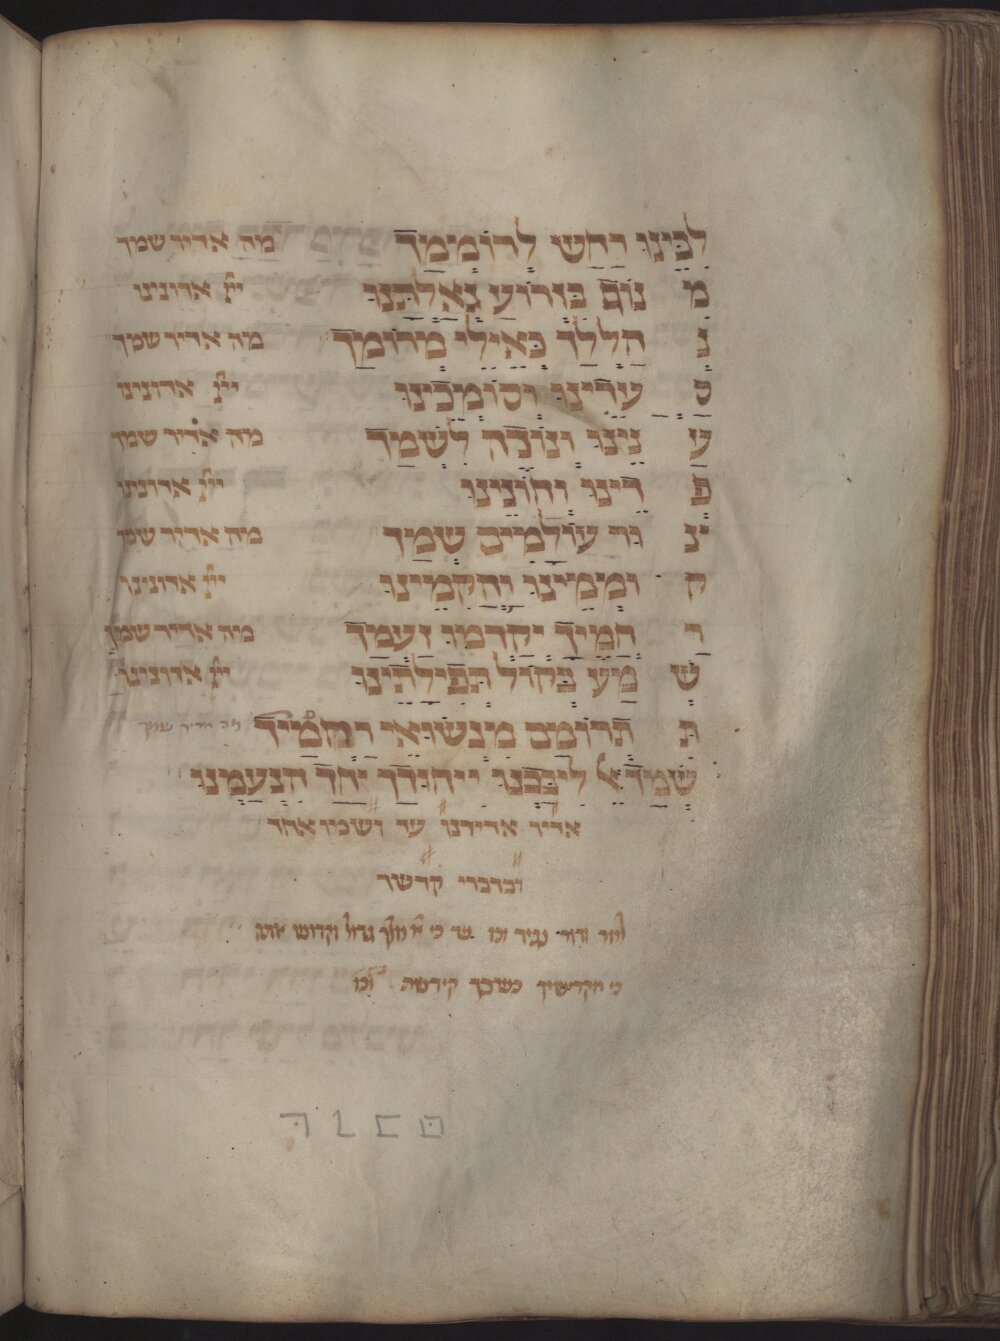 לבינו רחש לרוממך מה אדיר שמך
מ נוס בזרוע גאלתנו יי׳ אדונינו
נ הללך כאילי מרומך מה אדיר שמך
ס עדינו וסומכינו יי׳ אדונינו
ע נינו ונודה לשמך מה אדיר שמך
פ דינו וחונינו יי׳ אדונינו
צ ור עולמים שמך מה אדיר שמך
ק וממינו והקמינו יי׳ אדונינו
ר חמיך יקדמו זעמך מה אדיר שמך
ש מע בקול תפילתינו יי׳ אדונינו
ת תרומם מנשואי רחמיך מה אדיר שמך
שמך אל ליבבנו ייחודך יחד הנעמנו
אדיר אדירנו עד ושמו אחד
ובדברי קדשך
לדור ודור נגיד וכו כי מלך גדול וקדוש אתה
כי מקדישיך כערכך קידשת וכו